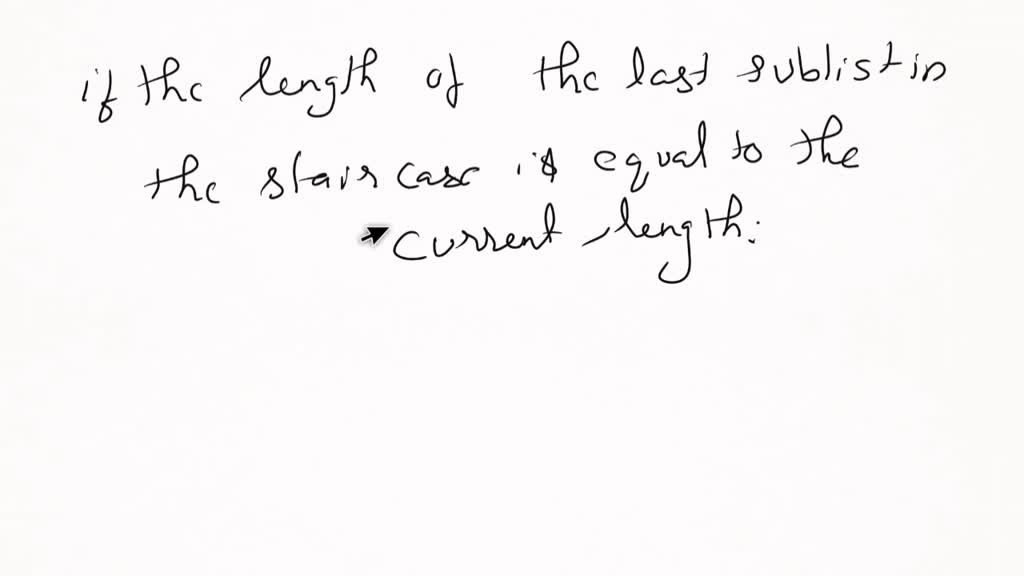 if the length of the last sublist in
the staircase is equal to the
current length.